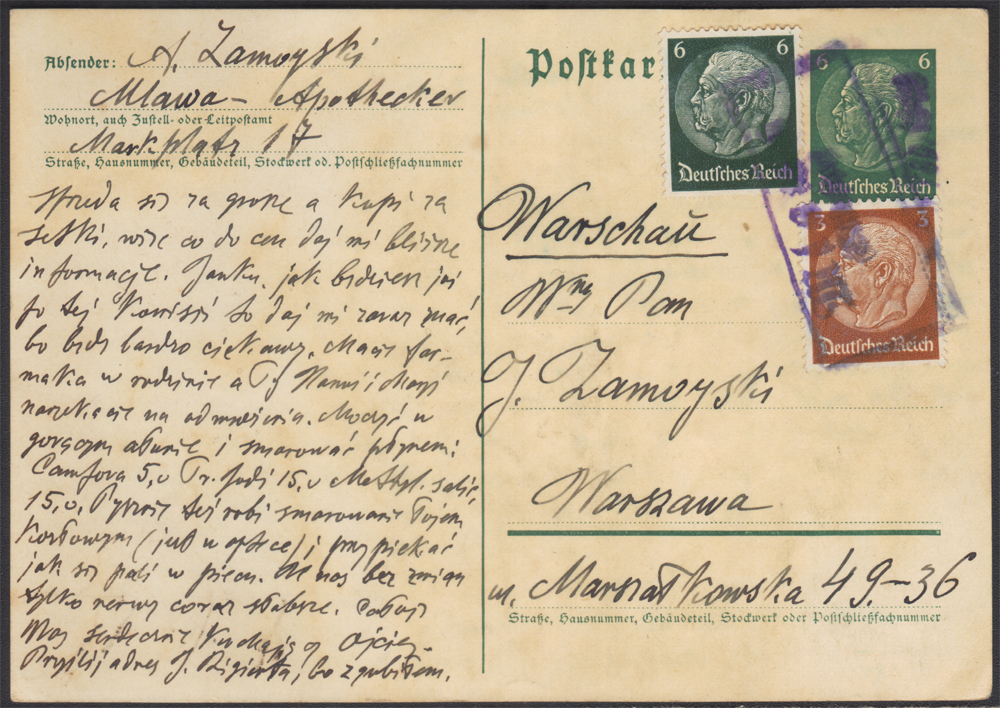 Absender: A. Zamoyski
Mlawa - Apothecker
Wohnort, auch Zustell- oder Leitpostamt
Markplatz 17
Straße, Hausnummer, Gebäudeteil, Stockwerk od. Postschließfachnummer
się za grosze a kupi za
setki, więc co do cen daj mi bliższe
informacje. Janku, jak będziesz już
po tej to daj mi zaraz znać,
bo będę bardzo ciekawy. Macie far-
maka w rodzinie a Ty i
narzekacie na odmrożenia. Moczyć w
gorącym ałunie i smarować płynem:
Camfora 5,0 Tr. Jodi 15,0 Methyl. salic.
15,0. też robi smarowanie łojem
(już w aptece) i przypiekać
jak się pali w piecu. U nas bez zmian
tylko nerwy coraz słabsze. Całuję
Was serdecznie Kochający Ojciec.
Przyślij adres J. bo zgubiłem.
Postkar
6 6
Deutsches Reich
6 6
Deutsches Reich
3 3
Deutsches Reich
Warschau
Wny Pan
J. Zamoyski
Warszawa
ul. Marszałkowska 49.-36
Straße, Hausnummer, Gebäudeteil, Stockwerk oder Postschließfachnummer